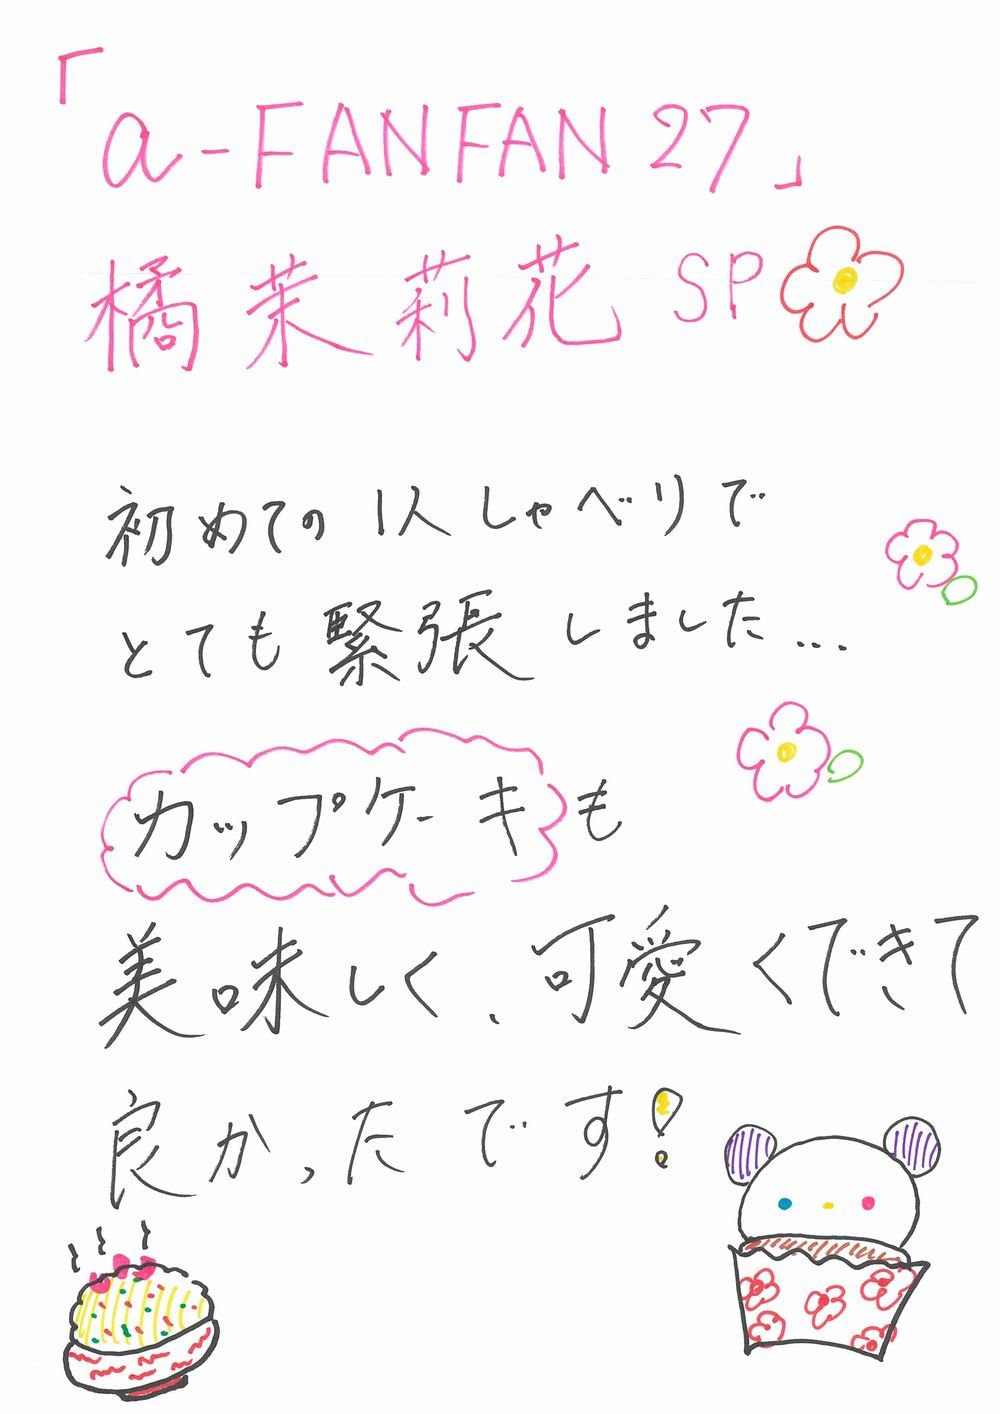 「a-FANFAN27」
橘茉莉花SP
初めての1人しゃべりで
とても緊張しました...
カップケーキも
美味しく、可愛くできて
良かったです!